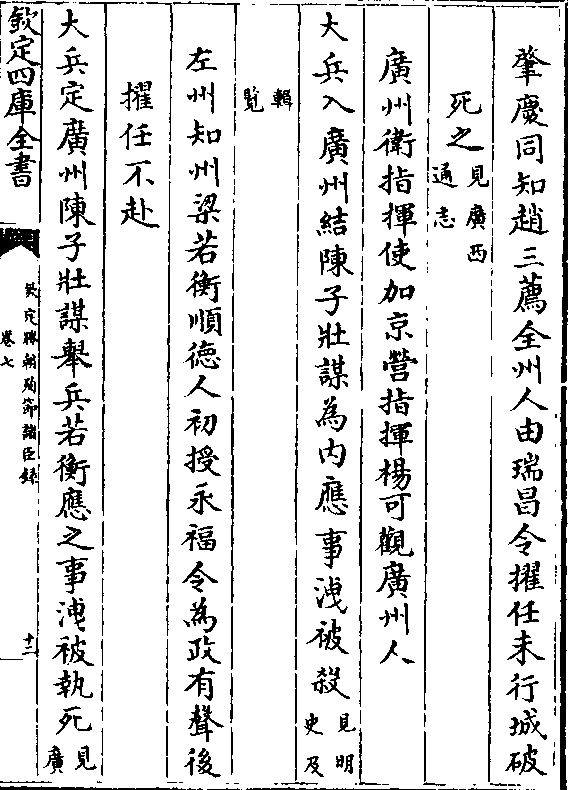 肇慶同知趙三薦全州人由瑞昌令擢任未行城破
死之見廣西通志
廣州衛指揮使加京營指揮楊可觀廣州人
大兵入廣州結陳子壯謀為内應事洩被殺見明史及
輯覽
左州知州梁若衡順德人初授永福令為政有聲後
擢任不赴
大兵定廣州陳子壯謀舉兵若衡應之事洩被執死見廣
欽定四庫全書
欽定勝朝殉節諸臣録
卷七
十二